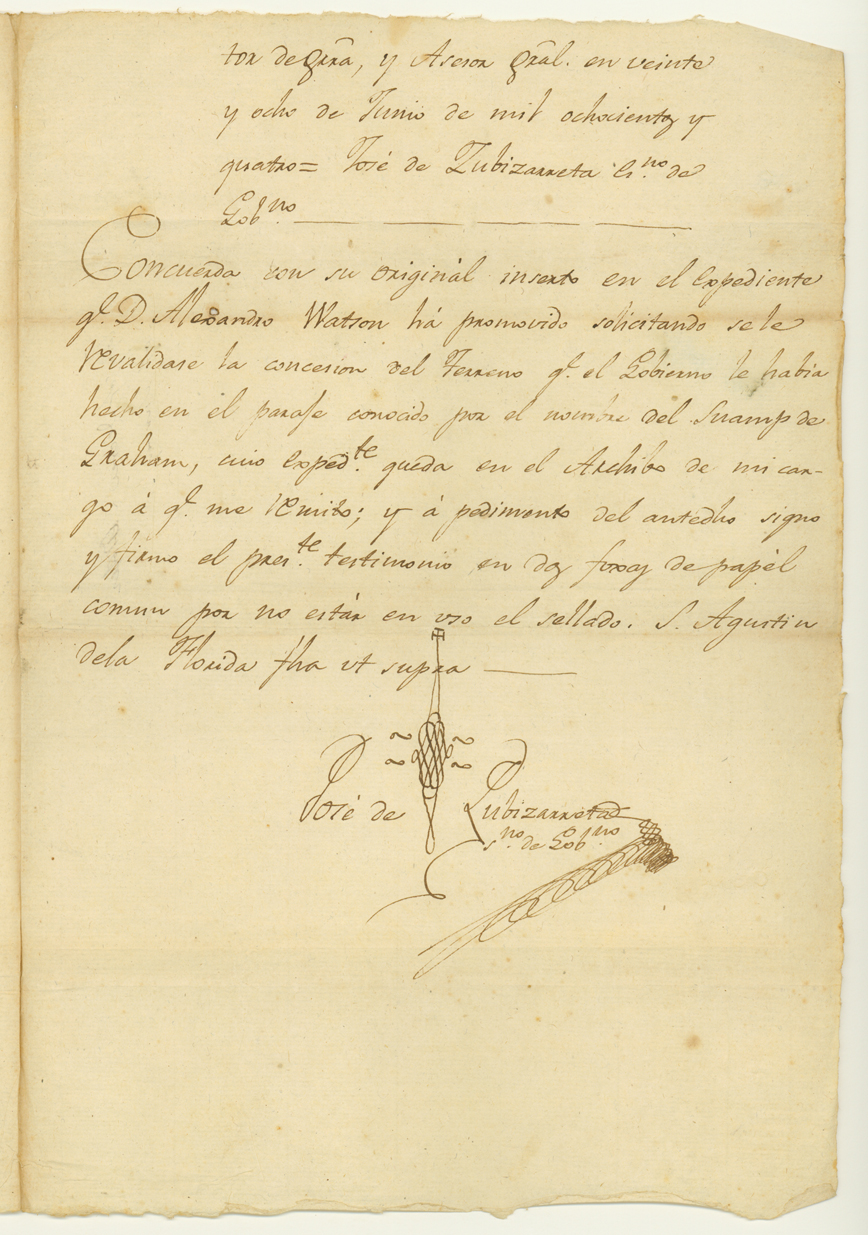 tor de Grrã, y Asesor Grãl. en veinte
y ocho de Junio de mil ochocientos y
quatro= José de Zubizarreta Es.no de
Gob.no
Concuerda con su original inserto en el Expediente
q.e D. Alexandro Watson há promovido solicitando se le
Revalidase la concesion del Terreno q.e el Gobierno le habia
hecho en el parage conocido por el nombre del Suamp de
Graham, cuio Exped.te queda en el Archibo de mi car-
go á q.e me Remito; y á pedimento del antedho signo
y firmo el pres.te testimonio en dos foxas de papèl
comun por no estár en uso el sellado. S. Agustin
dela Florida fha ut supra
José de Zubizarreta
s.no de Gob.no